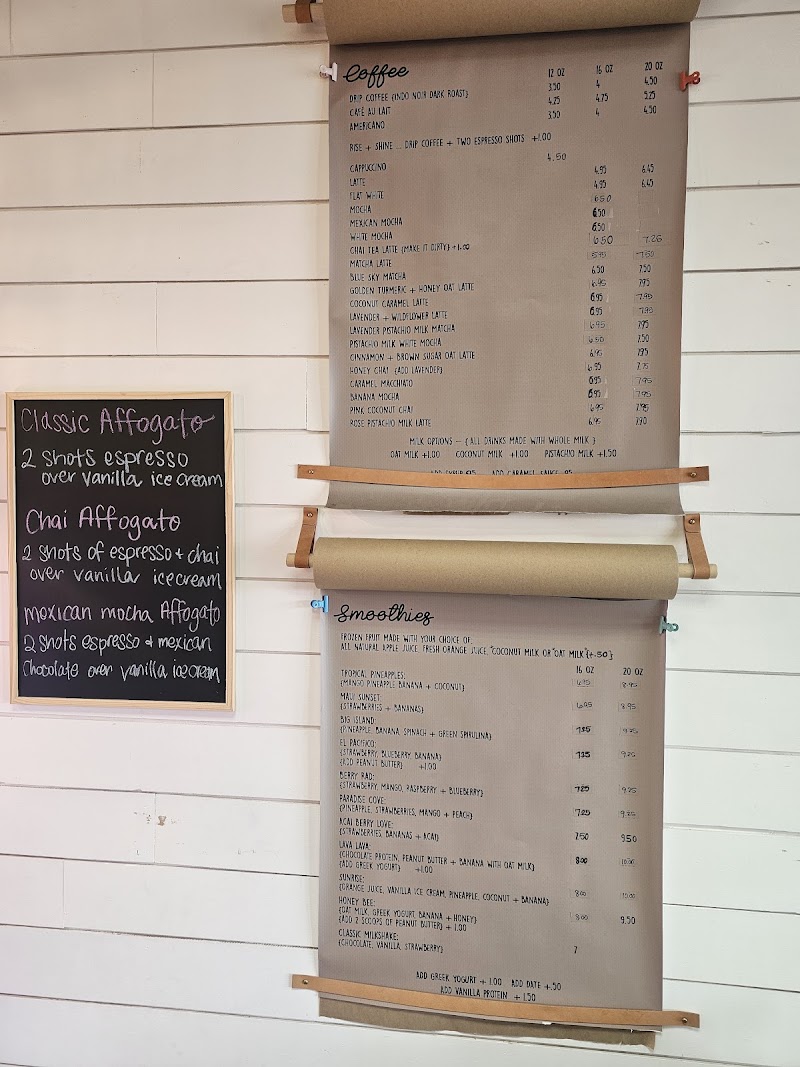 Coffee
12 OZ 16 OZ 20 OZ
DRIP COFFEE {INDO NOIR DARK ROAST} 3.50 4 4.50
CAFÉ AU LAIT 4.25 4.75 5.25
AMERICANO 3.50 4 4.50
RISE + SHINE ... DRIP COFFEE + TWO ESPRESSO SHOTS +1.00
4.50
CAPPUCCINO
LATTE 4.95 6.45
FLAT WHITE 4.95 6.45
MOCHA 6.50
MEXICAN MOCHA 6.50
WHITE MOCHA 6.50
CHAI TEA LATTE {MAKE IT DIRTY} +1.00 6.50 7.25
MATCHA LATTE 7.50
BLUE SKY MATCHA 6.50 7.50
GOLDEN TURMERIC + HONEY OAT LATTE 6.95 7.95
COCONUT CARAMEL LATTE 6.95 7.95
LAVENDER + WILDFLOWER LATTE 6.95 7.95
LAVENDER PISTACHIO MILK MATCHA 6.95 7.95
PISTACHIO MILK WHITE MOCHA 6.50 7.50
CINNAMON + BROWN SUGAR OAT LATTE 6.95 7.95
HONEY CHAI {ADD LAVENDER} 6.95 7.75
CARAMEL MACCHIATO 6.95 7.95
BANANA MOCHA 6.95 7.95
PINK COCONUT CHAI 6.95 7.95
ROSE PISTACHIO MILK LATTE 6.95
MILK OPTIONS - {ALL DRINKS MADE WITH WHOLE MILK}
OAT MILK +1.00 COCONUT MILK +1.00 PISTACHIO MILK +1.50
ADD SYRUP ADD CARAMEL SAUCE
Classic Affogato
2 shots espresso
over vanilla ice cream
Chai Affogato
2 shots of espresso + chai
over vanilla ice cream
mexican mocha Affogato
2 shots espresso + mexican
Chocolate over vanilla ice cream
Smoothies
FROZEN FRUIT MADE WITH YOUR CHOICE OF:
ALL NATURAL APPLE JUICE, FRESH ORANGE JUICE, *COCONUT MILK OR *OAT MILK {+.50}
16 OZ 20 OZ
TROPICAL PINEAPPLES:
{MANGO PINEAPPLE BANANA + COCONUT} 6.95 8.95
MAUI SUNSET:
{STRAWBERRIES + BANANAS} 6.95 8.95
BIG ISLAND:
{PINEAPPLE, BANANA, SPINACH + GREEN SPIRULINA} 7.25 9.25
EL PACIFICO:
{STRAWBERRY, BLUEBERRY, BANANA} 7.25 9.25
{ADD PEANUT BUTTER} +1.00
BERRY RAD:
{STRAWBERRY, MANGO, RASPBERRY + BLUEBERRY} 7.25 9.25
PARADISE COVE:
{PINEAPPLE, STRAWBERRIES, MANGO + PEACH} 7.25 9.25
ACAI BERRY LOVE:
{STRAWBERRIES, BANANAS + ACAI} 7.50 9.50
LAVA LAVA:
{CHOCOLATE PROTEIN, PEANUT BUTTER + BANANA WITH OAT MILK} 8.00 10.00
{ADD GREEK YOGURT} +1.00
SUNRISE:
{ORANGE JUICE, VANILLA ICE CREAM, PINEAPPLE, COCONUT + BANANA} 8.00 10.00
HONEY BEE:
{OAT MILK, GREEK YOGURT, BANANA + HONEY} 8.00 9.50
{ADD 2 SCOOPS OF PEANUT BUTTER} + 1.00
CLASSIC MILKSHAKE:
{CHOCOLATE, VANILLA, STRAWBERRY} 7
ADD GREEK YOGURT + 1.00 ADD DATE +.50
ADD VANILLA PROTEIN + 1.50